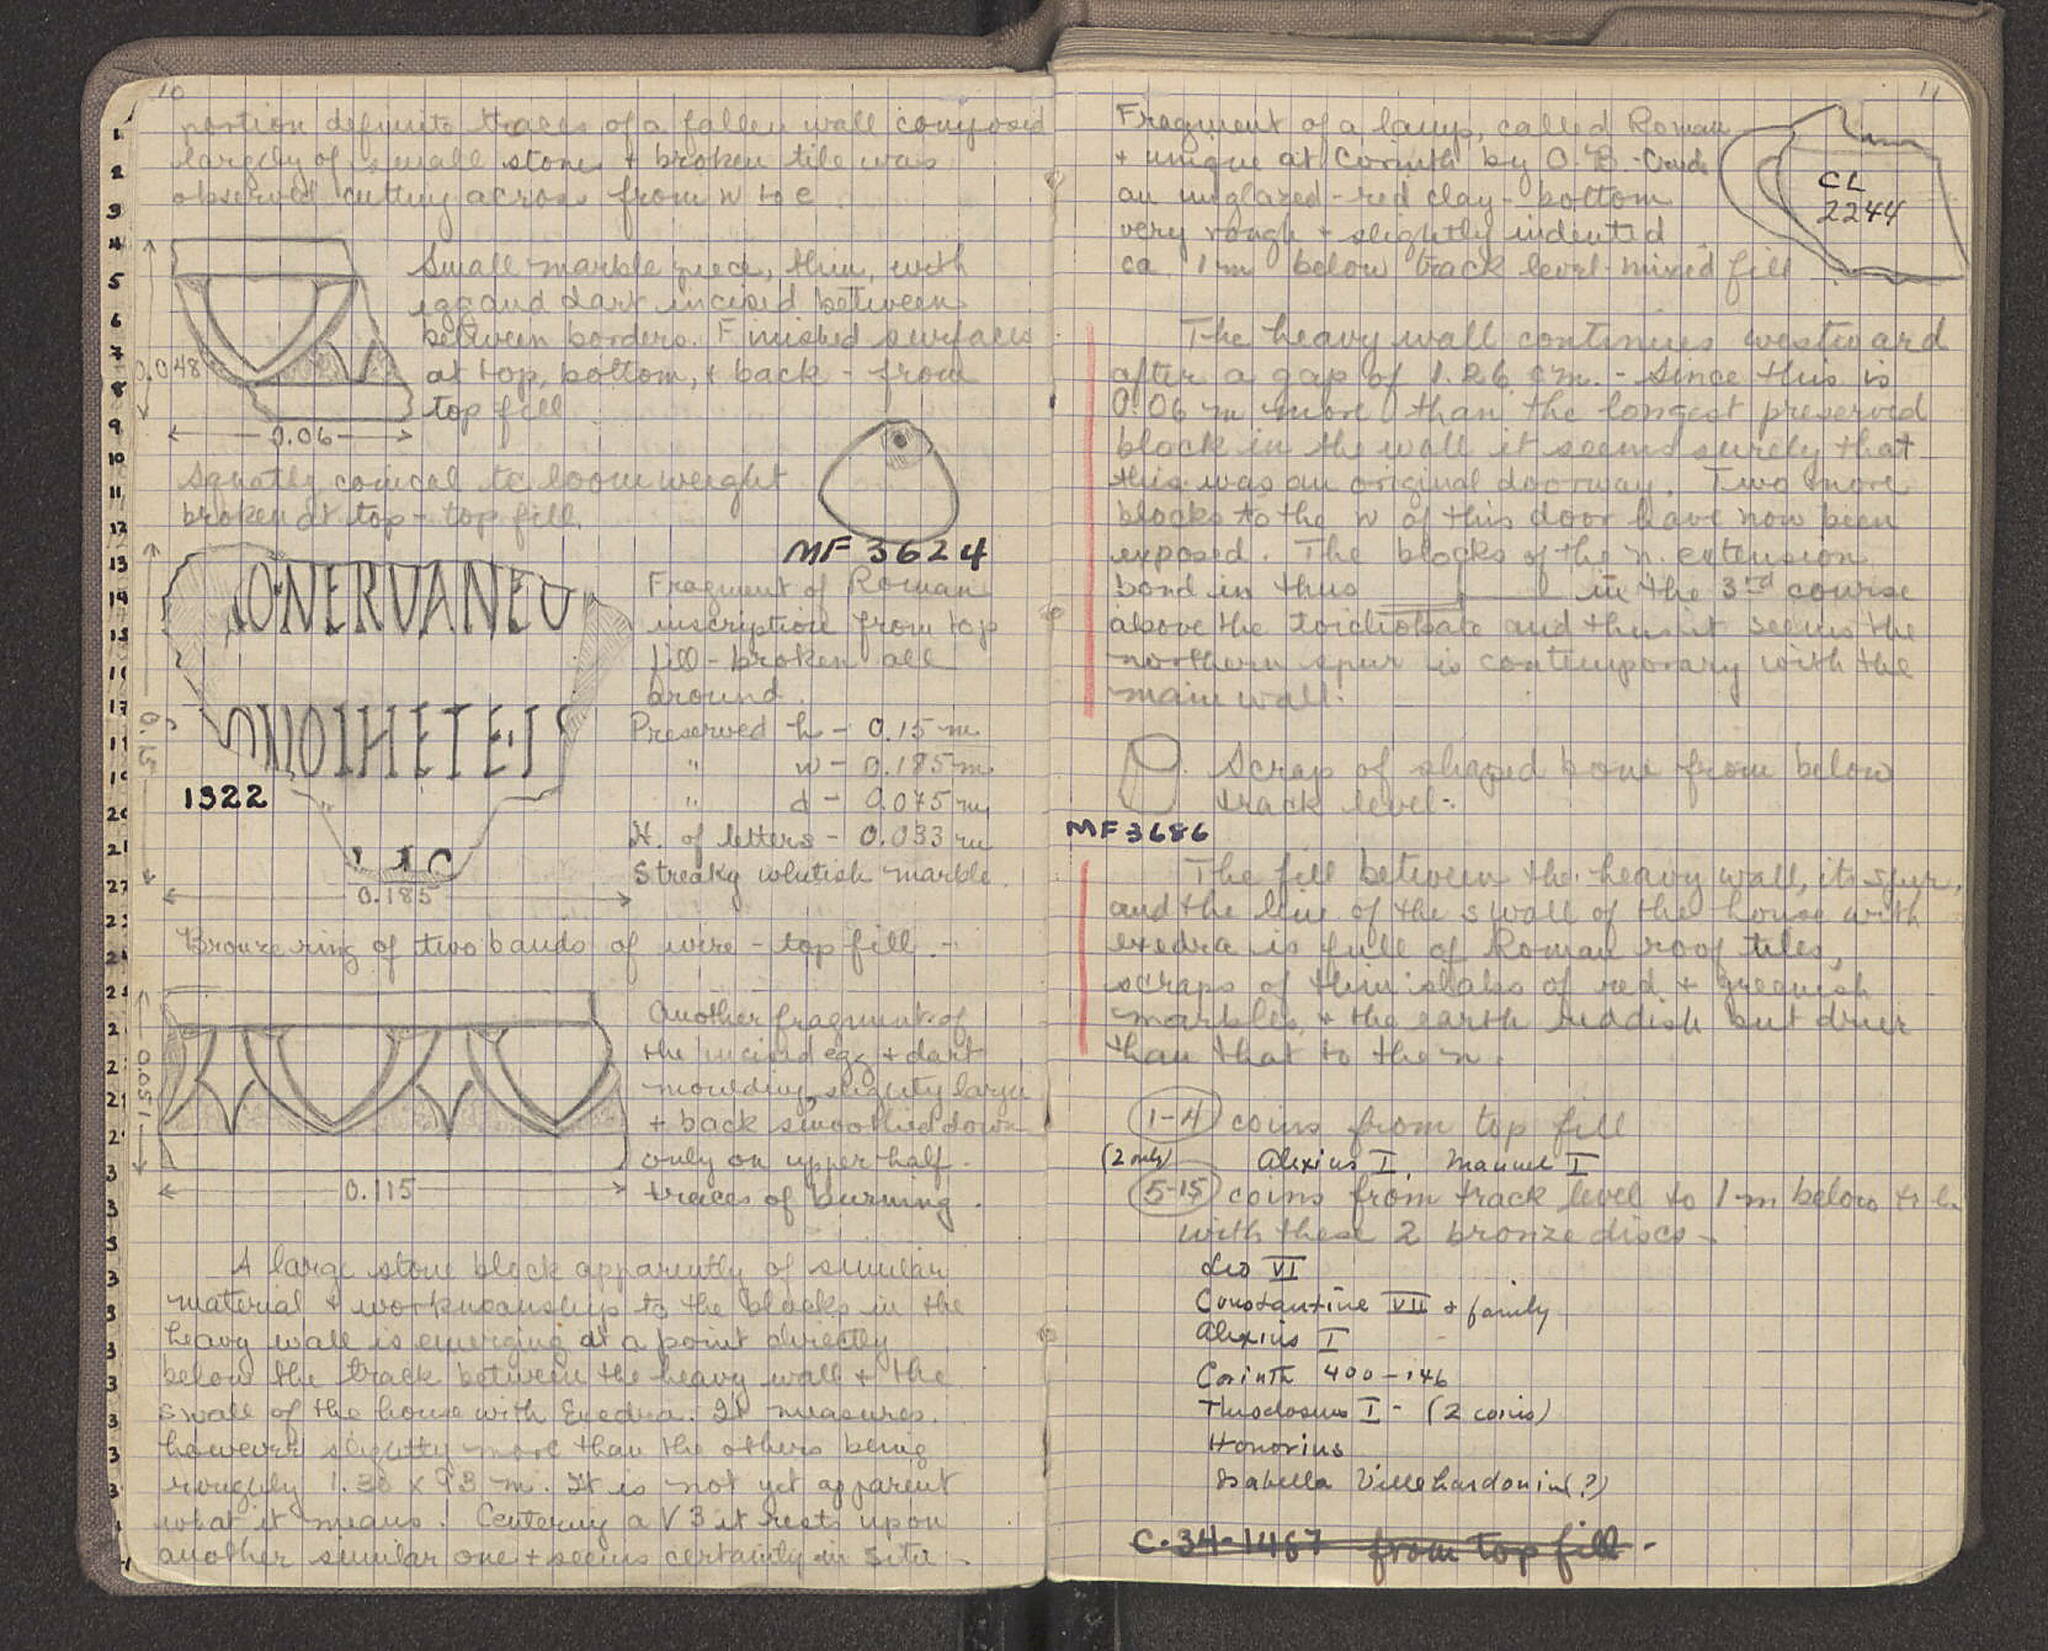 10
portion definite traces of a fallen wall composed
largely of small stones + broken tile was
observed cutting across from w to e.
Small marble piece, thin, with
egg and dart incised between
between borders. Finished surfaces
at top, bottom, + back - from
top fill
0.048
0.06
Squatly conical tc loomweight
broken at top - top fill.
MF 3624
ONERVANEO
Fragment of Roman
inscription from top
fill - broken all
around.
Preserved h - 0.15 m
" w - 0.185 m
" d - 0.075 m
H. of letters - 0.033 m
Streaky whitish marble.
1322
0.15
0.185
Bronze ring of two bands of wire - top fill. -
Another fragment of
the incised egg + dart
moulding, slightly larger
+ back smoothed down
only on upper half -
traces of burning.
0.051
0.115
A large stone block apparently of similar
material + workmanship to the blocks in the
heavy wall is emerging at a point directly
below the track between the heavy wall + the
s wall of the house with Exedra. It measures
however slightly more than the others being
roughly 1.30 x 93 m. It is not yet apparent
what it means. Centering a V 3 it rests upon
another similar one + seems certainly in situ -
11
Fragment of a lamp, called Roman
+ unique at Corinth by O.B. - Crude
an unglazed - red clay - bottom
very rough + slightly indented
ca 1 m below track level - mixed fill
CL
2244
The heavy wall continues westward
after a gap of 1.26 cm. - Since this is
0.06 m more than the longest preserved
block in the wall it seems surely that
this was an original doorway. Two more
blocks to the w of this door have now been
exposed. The blocks of the n. extension
bond in thus in the 3rd course
above the toichobate and thus it seems the
northern spur is contemporary with the
main wall.
Scrap of shaped bone from below
track level -
MF 3686
The fill between the heavy wall, its spur,
and the line of the s wall of the house with
exedra is full of Roman roof tiles,
scraps of thin slabs of red + greenish
marbles, + the earth reddish but drier
than that to the n.
1-4 coins from top fill
(2 only) Alexius I, Manuel I
5-15 coins from track level to 1 m below
with these 2 bronze discs -
Leo VI
Constantine VII + family
Alexius I
Corinth 400-146
Theodosius I - (2 coins)
Honorius
Isabella Villehardouin (?)
C-34-1467 from top fill -